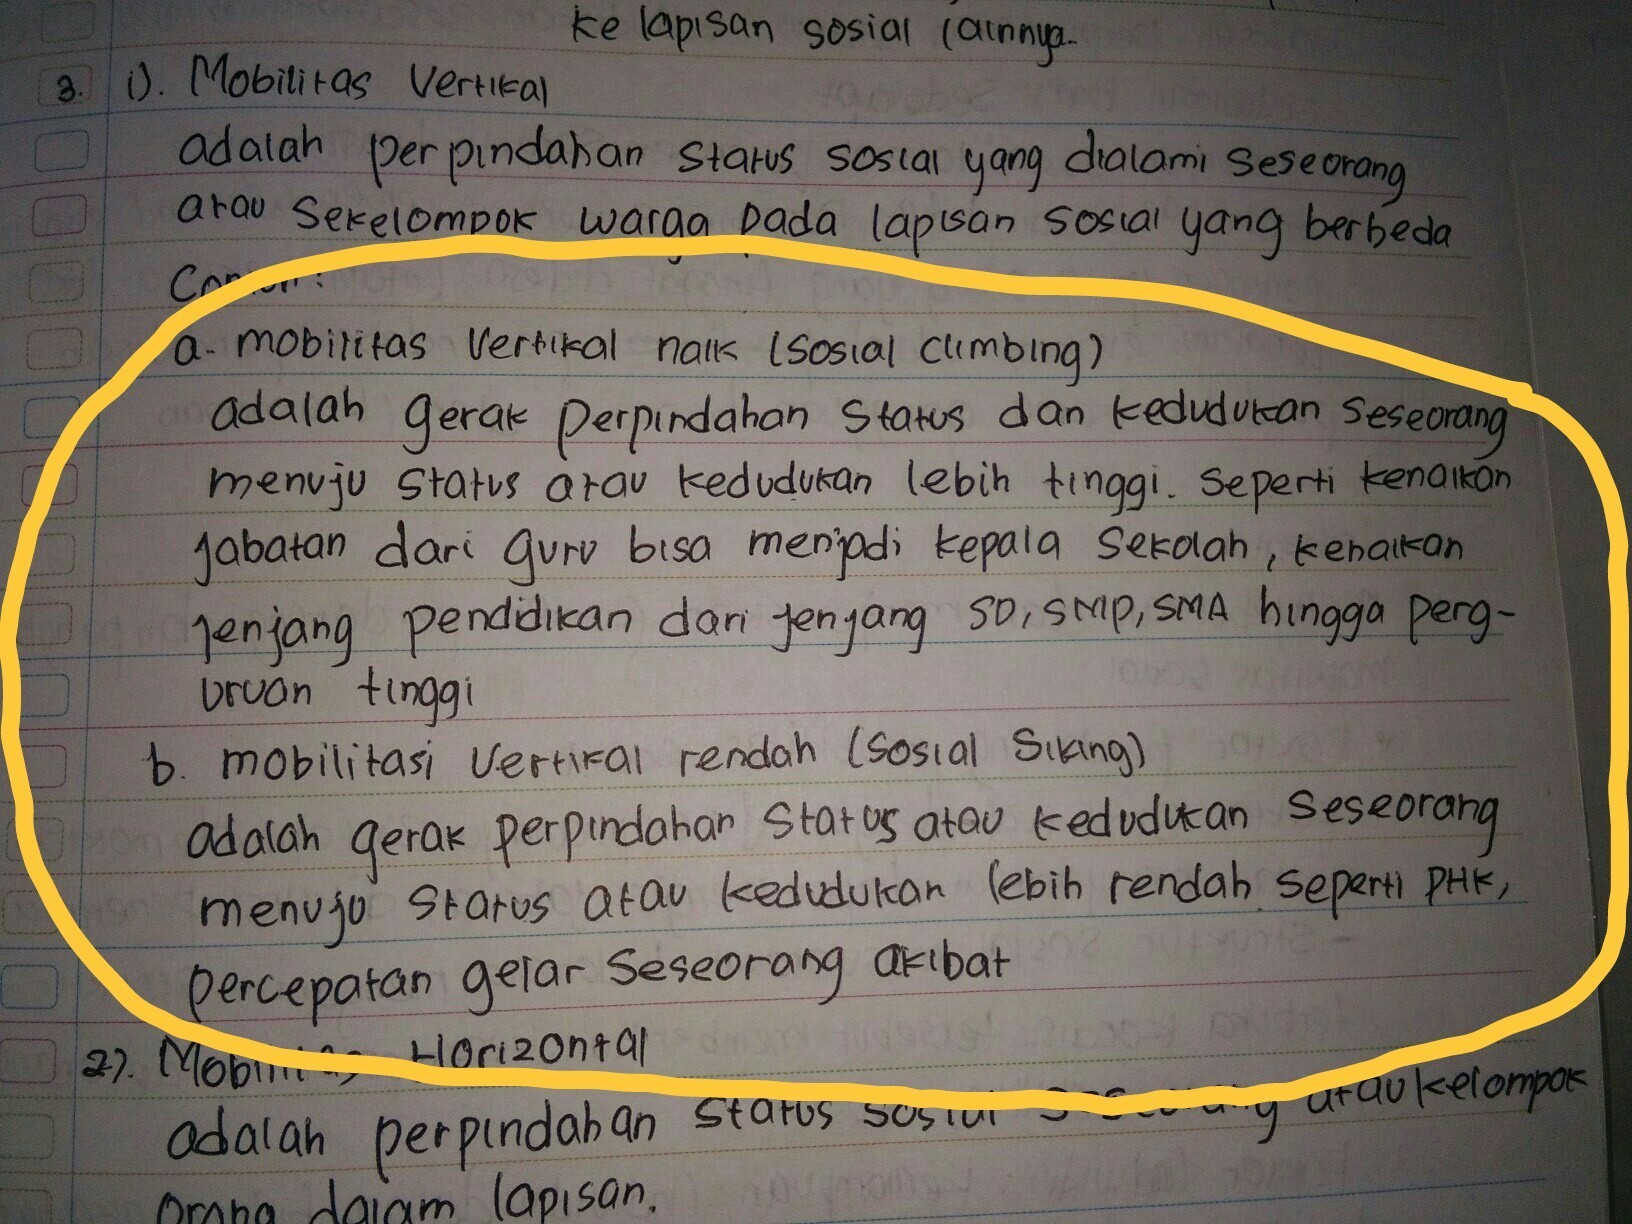 ke lapisan sosial lainnya.
3. 1). Mobilitas Vertikal
adalah perpindahan status sosial yang dialami seseorang
atau sekelompok warga pada lapisan sosial yang berbeda
Contoh :
a. mobilitas vertikal naik (sosial climbing)
adalah gerak perpindahan status dan kedudukan seseorang
menuju status atau kedudukan lebih tinggi. seperti kenaikan
jabatan dari guru bisa menjadi kepala sekolah, kenaikan
jenjang pendidikan dari jenjang SD, SMP, SMA hingga perg-
uruan tinggi
b. mobilitasi vertikal rendah (sosial siking)
adalah gerak perpindahan status atau kedudukan seseorang
menuju status atau kedudukan lebih rendah seperti PHK,
percepatan gelar seseorang akibat
2). Mobilitas Horizontal
adalah perpindahan status sosial seseorang atau kelompok
orang dalam lapisan.